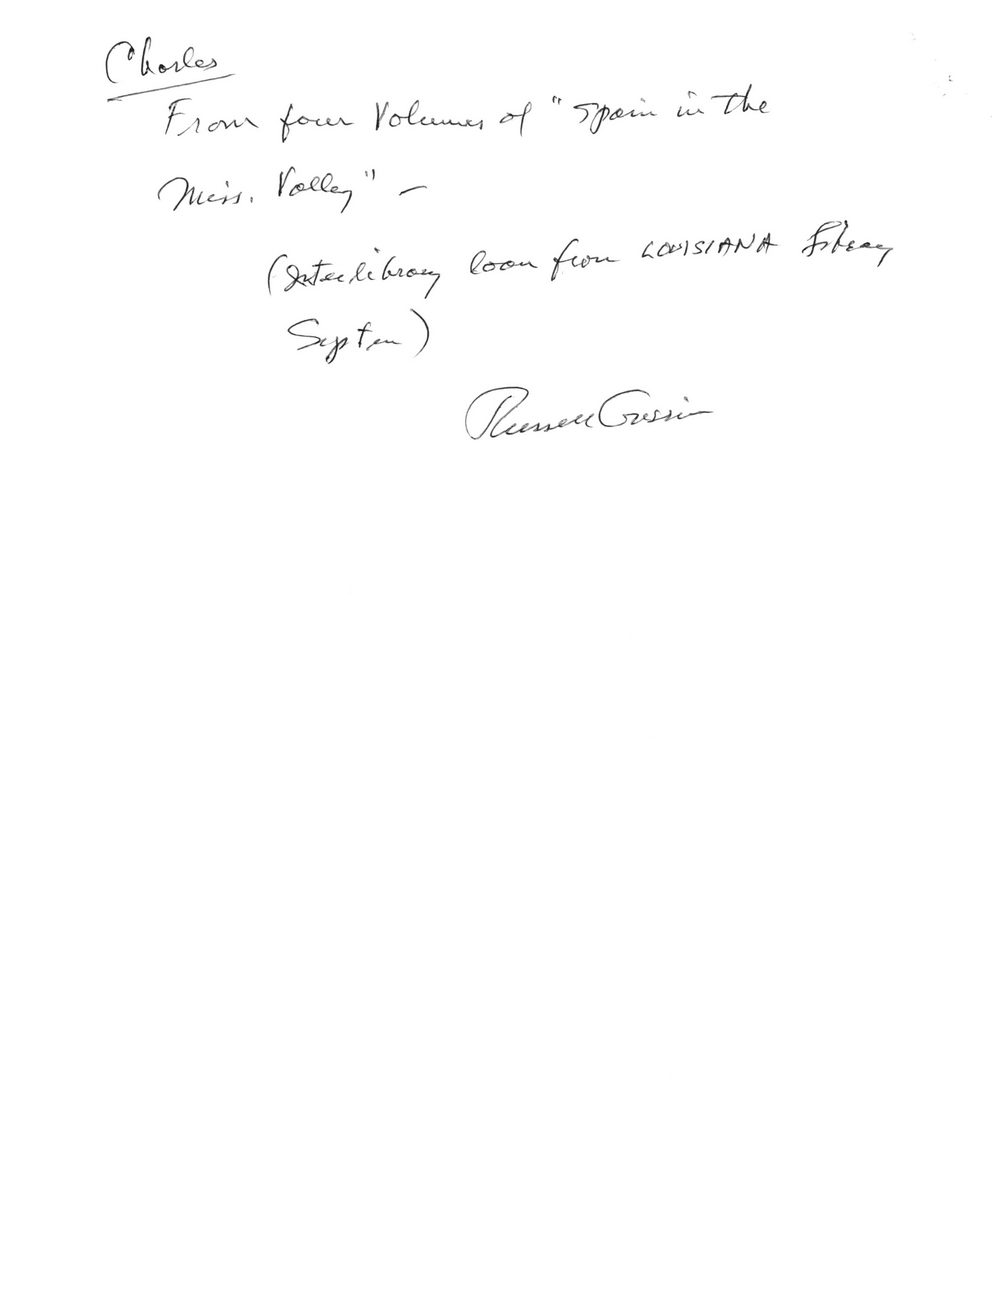 Charles
From four Volumes of "Spain in the
Miss. Valley" —
(Interlibrary loan from LOUISIANA Library
System)
Russell